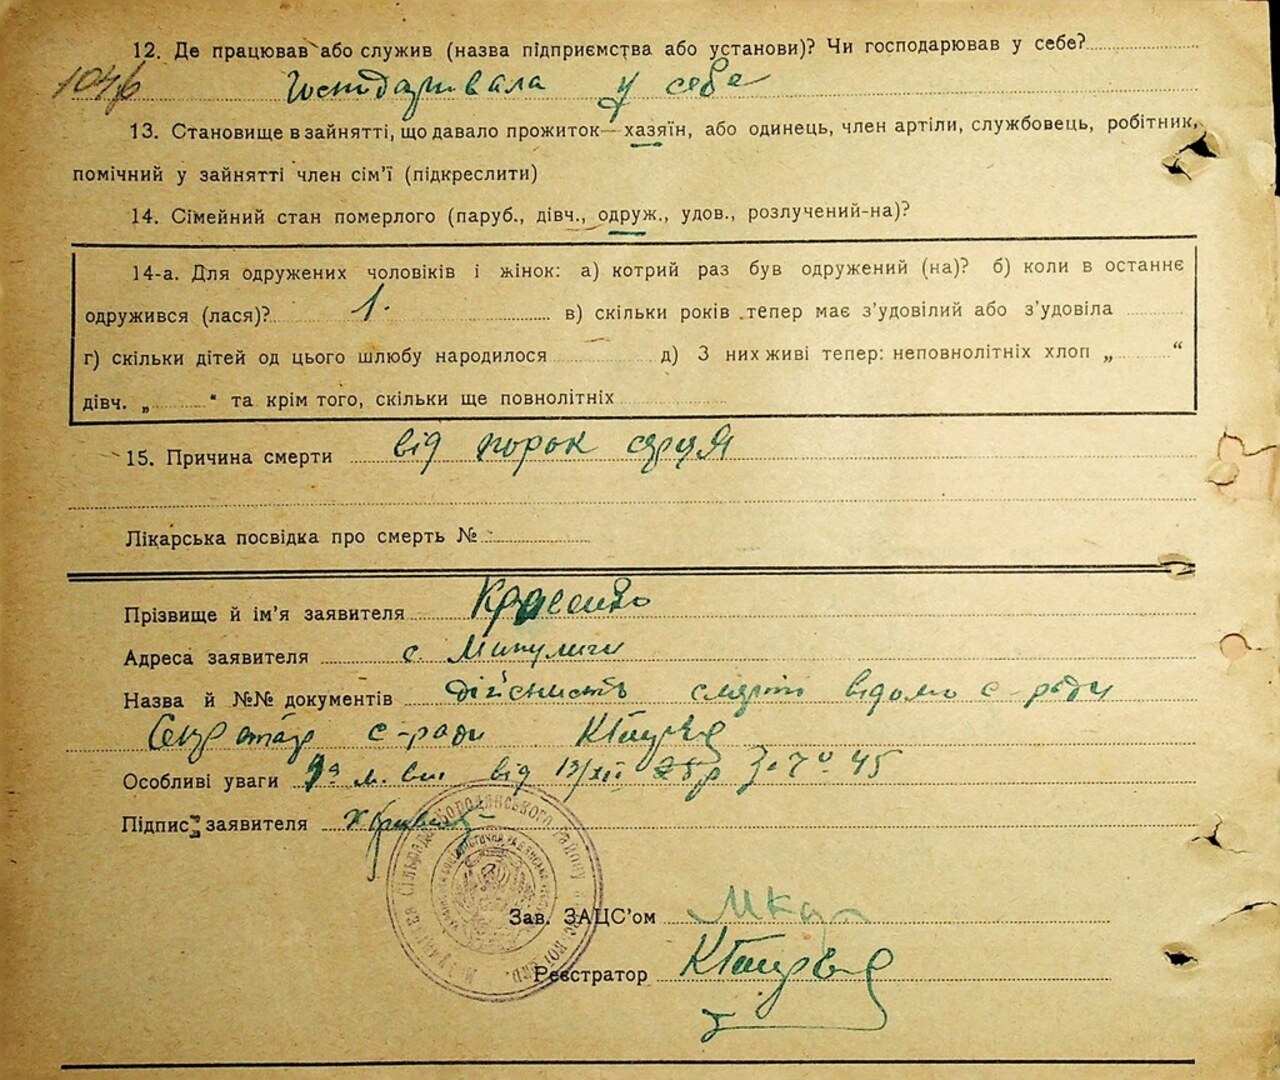 12. Де працював або служив (назва підприємства або установи)? Чи господарював у себе?
1046
Господаривала у себе
13. Становище в зайнятті, що давало прожиток— хазяїн, або одинець, член артіли, службовець, робітник,
помічний у зайнятті член сім’ї (підкреслити)
14. Сімейний стан померлого (паруб., дівч., одруж., удов., розлучений-на)?
14-а. Для одружених чоловіків і жінок: а) котрий раз був одружений (на)? б) коли в останнє
одружився (лася)? 1. в) скільки років тепер має з’удовілий або з’удовіла
г) скільки дітей од цього шлюбу народилося д) З них живі тепер: неповнолітніх хлоп „ “
дівч. „ “ та крім того, скільки ще повнолітніх
15. Причина смерти від порок серця
Лікарська посвідка про смерть №
Прізвище й ім’я заявителя
Адреса заявителя с. Микуличи
Назва й №№ документів дійсність смерти відомо с-ради
Секретар с-ради
Особливі уваги від 13/XII 45
Підпис заявителя
Зав. ЗАЦС’ом
Реєстратор